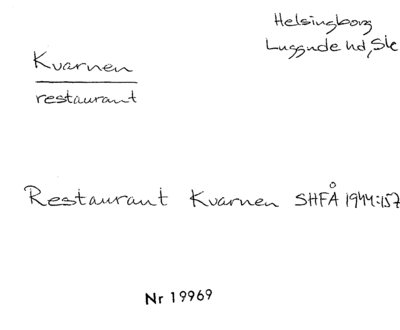 Helsingborg
Luggude hd, Sk
Kvarnen
restaurant
Restaurant Kvarnen SHFÅ 1944:157
Nr 19969